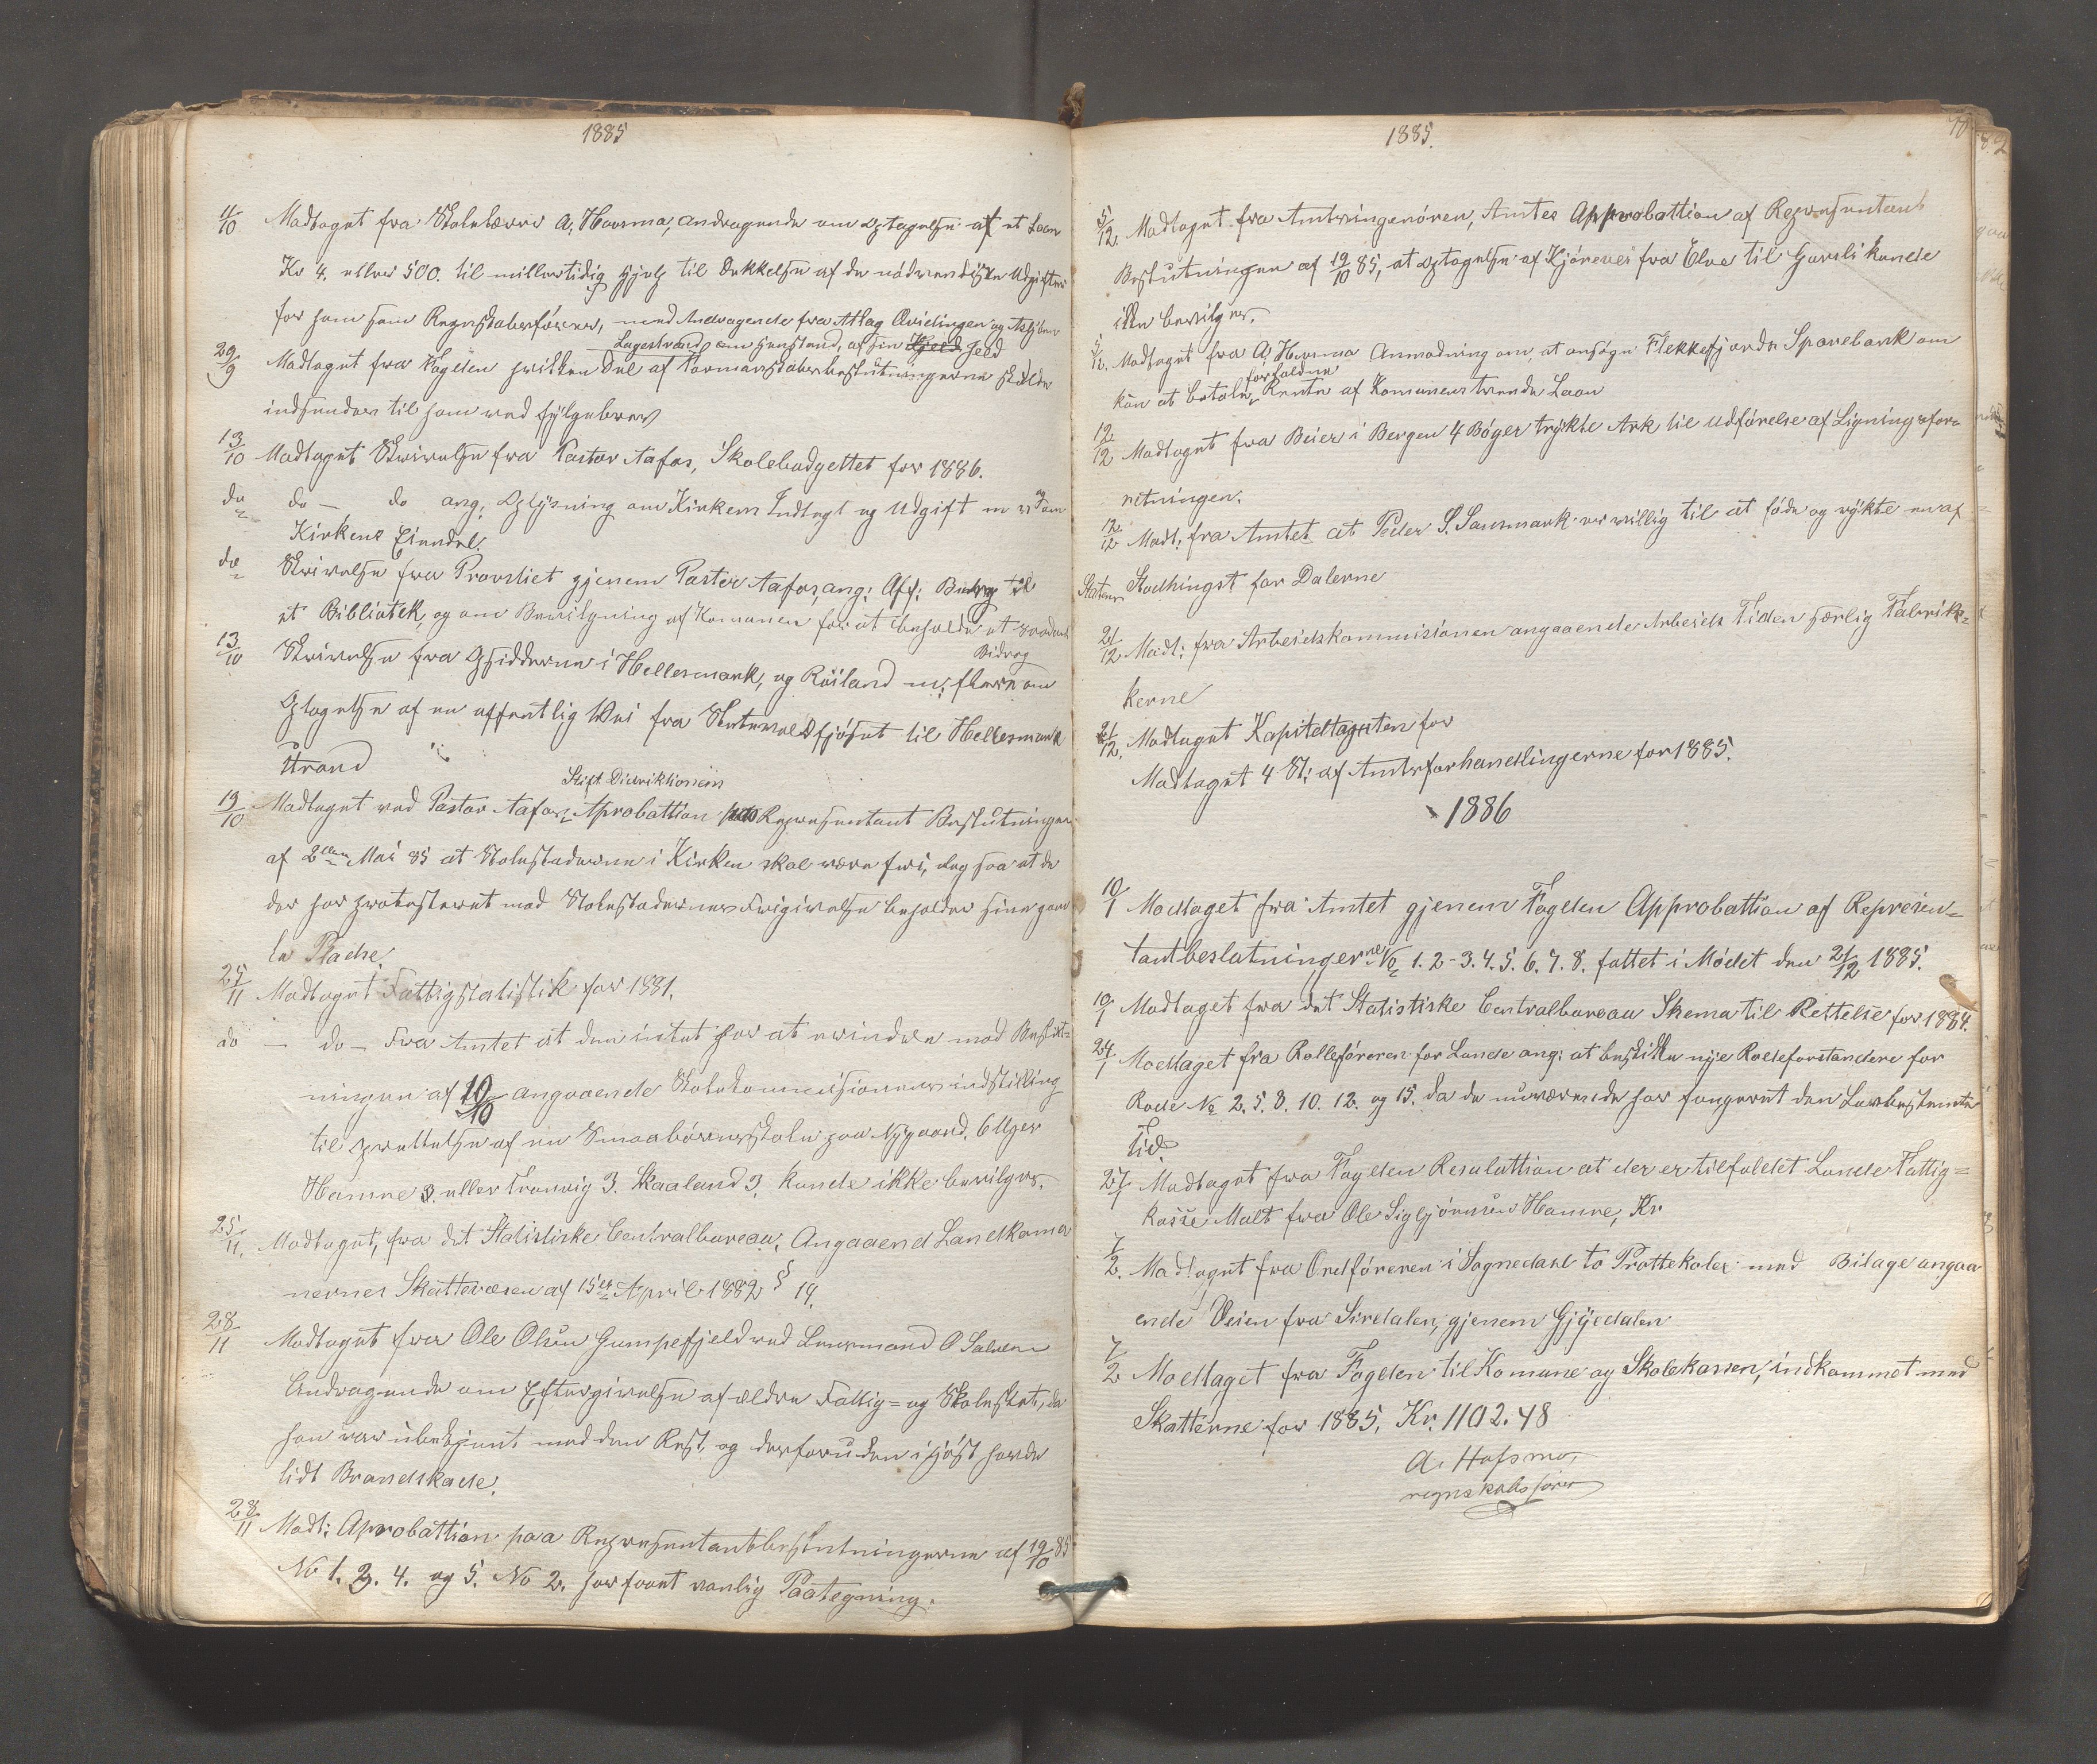 1885
11/10 Modtaget fra Skolelærer A, Hovsmo, andragende om Optagelse af et Laan
Kr 4. eller 500. til midlertidig Hjælp til Dækkelse af de nødvendigste Udgifter
for ham som Regnskabsfører, med Andragende fra Atlag Qvidingen og Asbjørn
Lagestrand om Henstand, af sin Gjeld
29/9 Modtaget fra Fogden hvilken Del af Formandskabsbeslutningerne skulde
indsendes til ham ved Følgebrev
13/10 Modtaget Skrivelse fra Pastor Aafos, Skolebudgettet for 1886.
do do – do ang, Oplysning om Kirkens Indtægt og Udgift m v og om
Kirkens Eiendel.
do Skrivelse fra Provstiet gjenem Pastor Aafos, ang: Aff: Bidrag til
et Bibliotek, og om Bevilgning af Komunen for at beholde et saadant
Bidrag
13/10 Skrivelse fra Opsidderne i Hellesmark, og Røiland m, flere om
Optagelse af en offentlig Vei fra Skutevoldsfjøset til Hellesmark
Strand
Stift Direktionens
19/10 Modtaget ved Pastor Aafos, Aprobattion paa Repræsentant Beslutningen
af 2den Mai 85 at Stolestaderne i Kirken skal være fri, dog saa at de
der har protesteret mod Stolestadernes Frigivelse beholder sine gam
le Pladse.
25/11 Modtaget Fattigstatistik for 1881.
do – do – Fra Amtet at den intet har at erindre mod Beslut-
ningen af 19/10 angaaende Skolekommissionens indstilling
til Oprettelse af en Smaabørnsskole paa Nygaard, 6 Uger
Hamre 3. eller Tronvig 3. Skaaland 3, kunde ikke bevilges.
25/11. Modtaget, fra det Statistiske Centralbureau, Angaaend Landkomu
nernes Skattevæsen af 15de April 1882 § 19.
28/11 Modtaget fra Ole Olsen Gumpefjeld ved Lensmand O Salvesen
Andragende om Eftergivelse af ældre Fattig= og Skoleskat, da
han var ubekjent med den Rest, og desforuden i Høst havde
lidt Brandskade.
28/11 Modt: Aprobattion paa Repræsentantbeslutningerne af 19/10 85
No 1. 3. 4. og 5. No 2. har faaet vanlig Paategning.
1885.
5/12. Modtaget fra Amtsingenøren, Amtes Approbattion af Representant
Beslutningen af 19/10 85, at Optagelse af Kjørevei fra Elve til Gursli kunde
ikke bevilges.
5/12. Modtaget fra A, Hovsmo Anmodning om at ansøge Flekkefjords Sparebank om
forfaldne
kun at betale Rente af Komunens trende Laan
12/12 Modtaget fra Beier i Bergen 4 Bøger trykte Ark til Udførelse af Ligningsfor=
retningen.
12/12 Modt, fra Amtet at Peder S. Saurmark er villig til at føde og røkte en af
Statens Stodhingst for Dalerne
21/12 Modt: fra Arbeidskommisionen angaaende Arbeids Tiden særlig Fabrik=
kerne
21/12. Modtaget Kapiteltagsten for
Modtaget 4 St: af Amtsforhandlingerne for 1885.
1886
10/1 Modtaget fra Amtet gjenem Fogden Approbattion af Represen=
tantbeslutningerne No 1. 2 - 3. 4. 5. 6. 7. 8. fattet i Mødet den 21/12 1885.
10/1 Modtaget fra det Statistiske Centralbureau Skema til Rettelse for 1884.
24/1 Modtaget fra Rolleføreren for Lunde ang: at beskikke nye Rodeforstandere for
Rode No 2. 5. 8. 10. 12. og 15. da de nuværende har fungeret den Lovbestemte
Tid.
27/1 Modtaget fra Fogden Resolattion at der er tilfaldet Lunde Fattig=
kasse Mult fra Ole Sigbjørnsen Hamre, Kr
7/2. Modtaget fra Ordføreren i Sognedahl to Prottekoler med Bilage angaa
ende Veien fra Sirdalen, gjenem Gjyedalen
7/2 Modtaget fra Fogden til Komune og Skolekassen, indkommet med
Skatterne for 1885, Kr. 1102.48
A. Hofsmo,
regnskabsfører